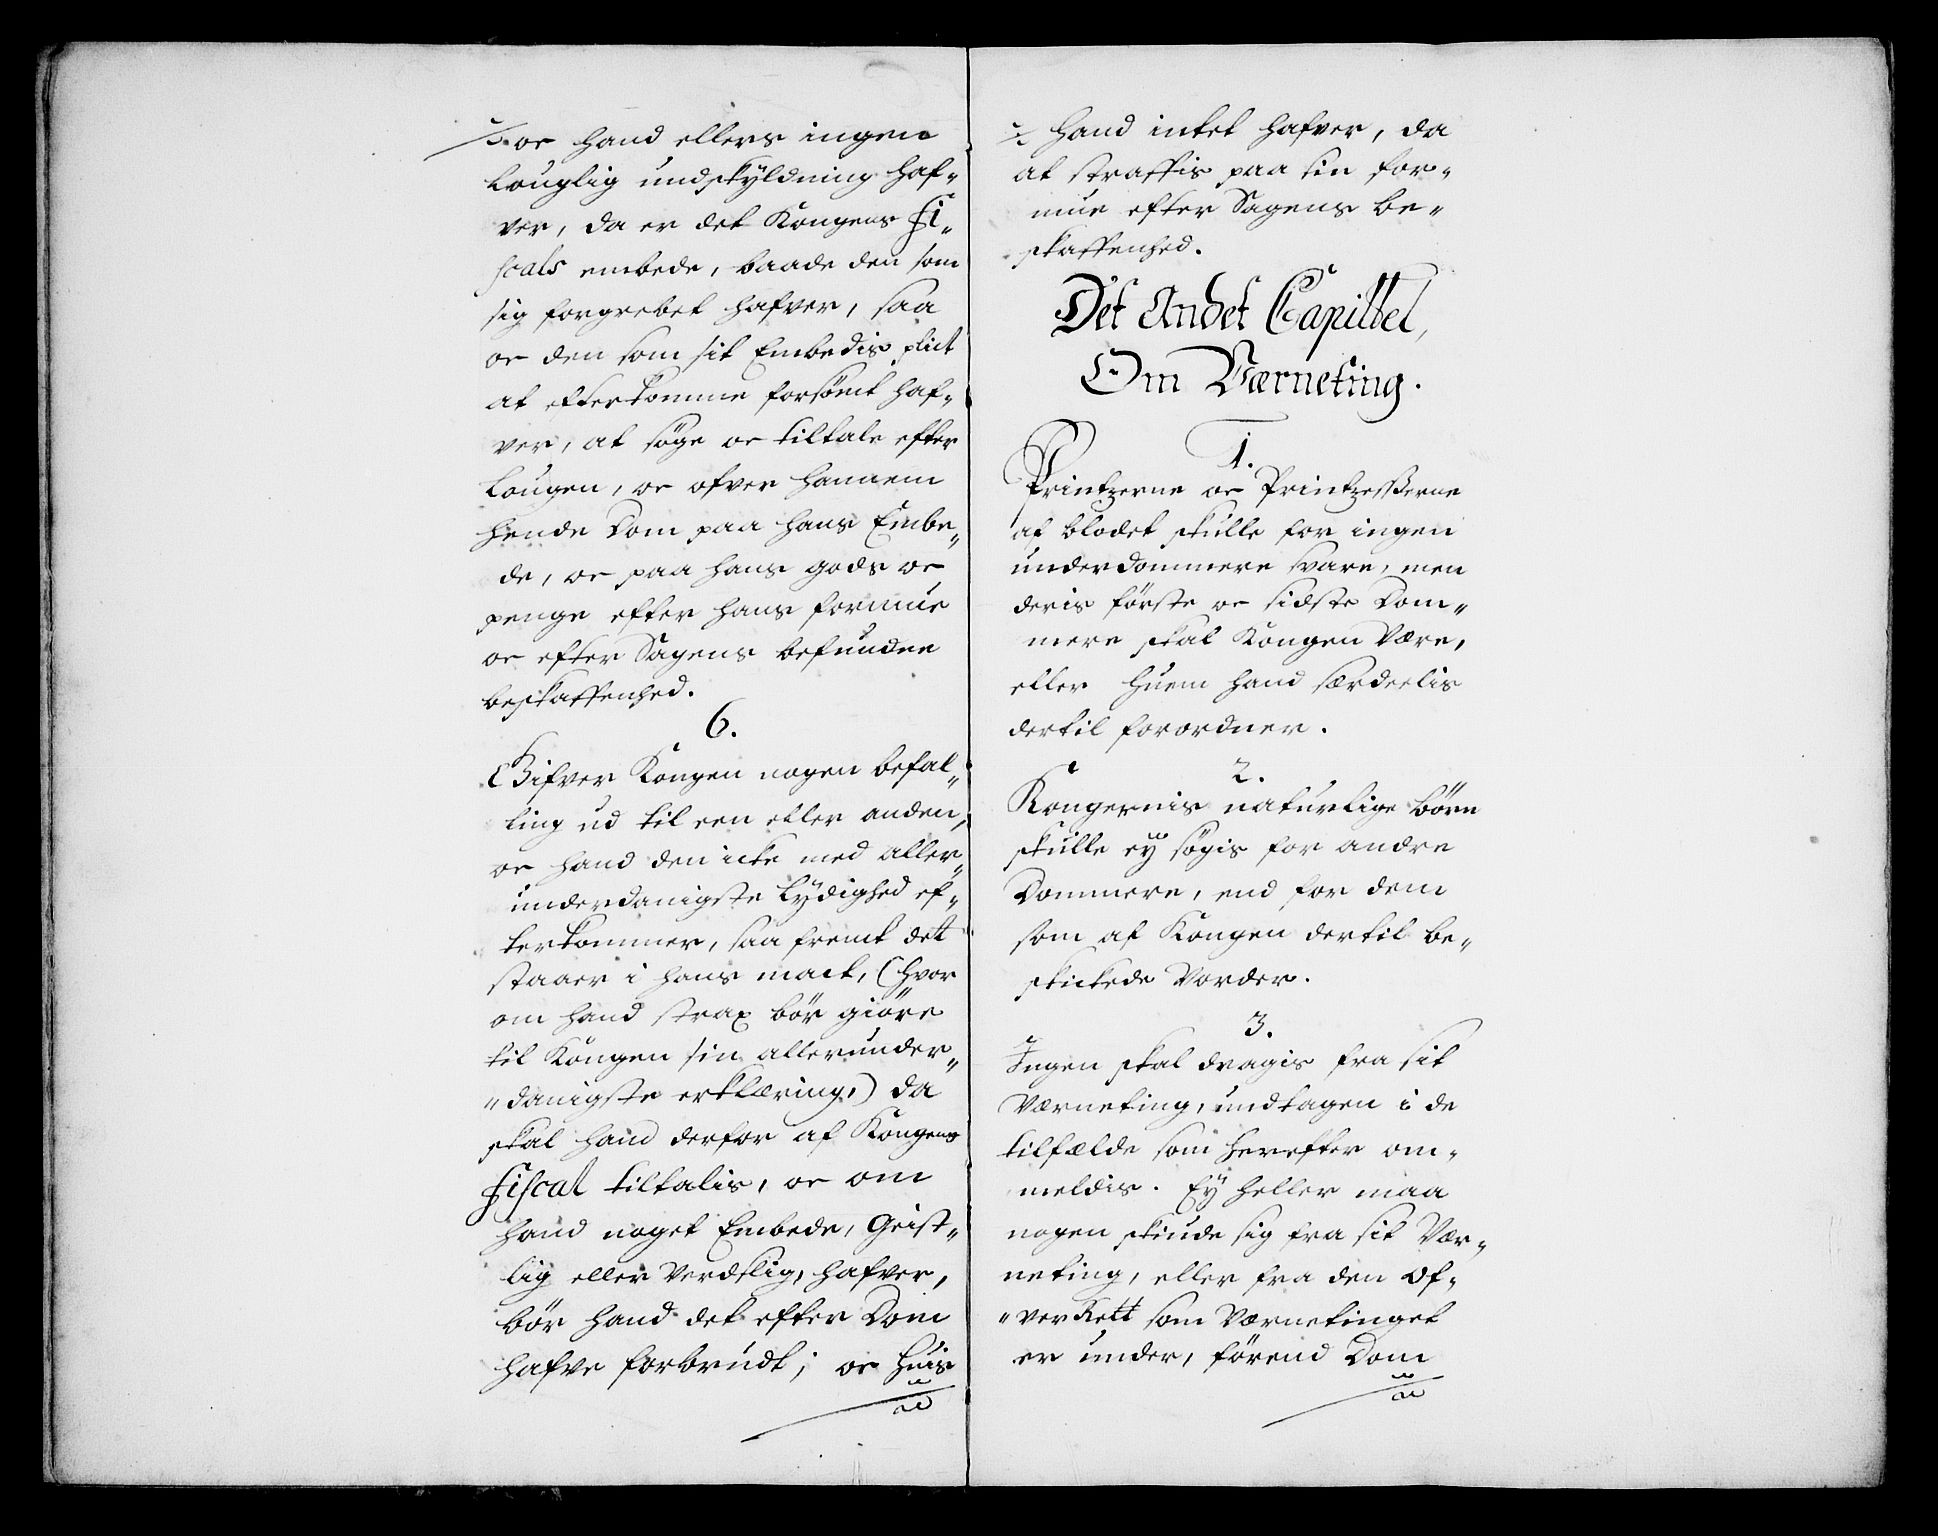 oc hand ellers ingen
Louglig undskyldning haf„
ver, da er det Kongens Fi„
scals embede, baade den som
sig forgrebet hafver, saa
oc den som sit Embedis plict
at efterkomme forsömt haf„
ver, at söge oc tiltale efter
Lougen, oc ofver hannem
hende Dom paa hans Embe„
de, oc paa hans gods oc
penge efter hans formue
oc efter Sagens befundne
beskaffenhed.
6.
Gifver Kongen nogen befal„
ling ud til een eller anden,
oc hand den icke med aller„
underdanigste Lydighed ef„
terkommer, saa fremt dett
staaer i hans mact, (hvor
om hand strax bör giöre
til Kongen sin allerunder„
„danigste erklæring,) da
skal hand derfor af Kongens
Fiscal tiltalis, oc om
hand noget Embede, Geist„
lig eller Verdslig, hafver,
bör hand det efter Dom
hafve forbrudt; oc huis
hand intet hafver, da
at straffis paa sin for„
mue efter Sagens be„
skaffenhed.
Det Andet Capittel,
Om Værneting.
1.
Printzerne oc Printzesserne
af blodet skulle for ingen
underdommere svare, men
deris förste oc sidste Dom„
mere skal Kongen Være,
eller huem hand særdeelis
dertil forordner.
2.
Kongernis naturlige börn
skulle ey sögis for andre
Dommere, end for dem
som af Kongen dertil be„
skickede Vorder.
3.
Ingen skal dragis fra sit
Værneting, undtagen i de
tilfælde som herefter om„
meldis. Ey heller maa
nogen skiude sig fra sit Vær„
neting, eller fra den Of„
„ver Rett som Værnetinget
er under, förend Dom